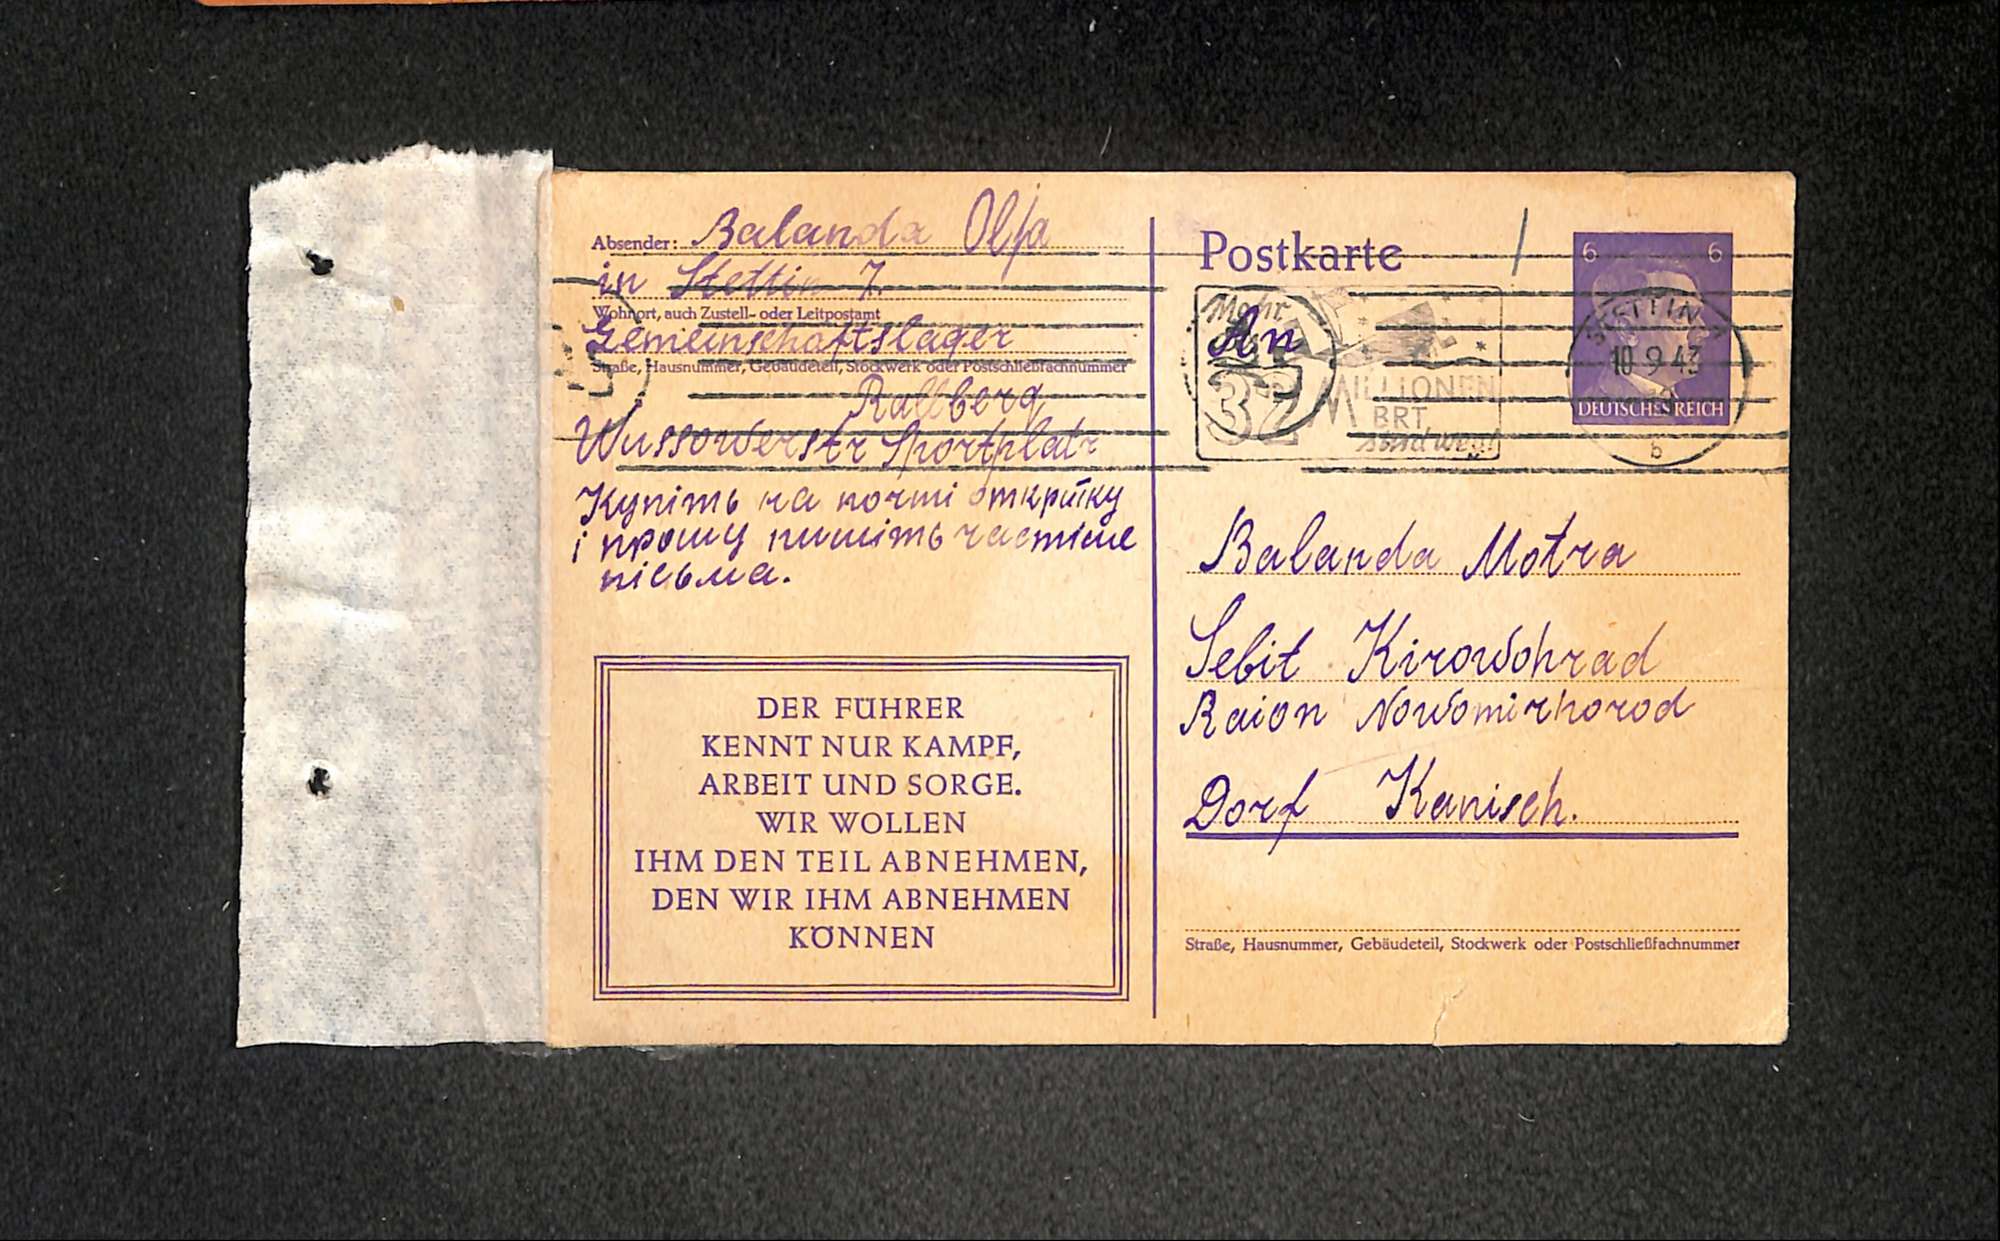 Absender: Balanda Olja
in Stettin 7.
Wohnort, auch Zustell- oder Leitpostamt
Gemeinschaftslager
Straße, Hausnummer, Gebäudeteil, Stockwerk oder Postschließfachnummer
Wussowerstr Sportplatz
Купіть на почті открітку
і прошу пишіть частіше
пісьма.
DER FÜHRER
KENNT NUR KAMPF,
ARBEIT UND SORGE.
WIR WOLLEN
IHM DEN TEIL ABNEHMEN,
DEN WIR IHM ABNEHMEN
KÖNNEN
Postkarte
6 6
DEUTSCHES REICH
STETTIN
10.9.43
b
Mehr
An
32 MILLIONEN
BRT
sind weg!
Balanda Motra
Sebit Kirowohrad
Raion Nowomirhorod
Dorf Kanisch.
Straße, Hausnummer, Gebäudeteil, Stockwerk oder Postschließfachnummer